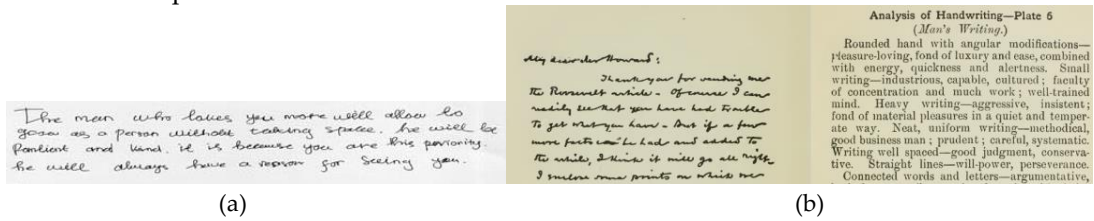 The man who loves you more will allow to
grow as a person without taking space. he will be
Pantient and kind. it is because you are his periority.
he will always have a reason for Seeing you.
(a)
My dear Howard:
Thank you for sending me
the Roosevelt article - Of course I can
readily see that you have had trouble
to get what you have - But if a few
more facts can be had and added to
the article, I think it will go all right
I enclose some points on which we
Analysis of Handwriting—Plate 6
(Man's Writing.)
Rounded hand with angular modifications—
pleasure-loving, fond of luxury and ease, combined
with energy, quickness and alertness. Small
writing—industrious, capable, cultured; faculty
of concentration and much work; well-trained
mind. Heavy writing—aggressive, insistent;
fond of material pleasures in a quiet and temper-
ate way. Neat, uniform writing—methodical,
good business man; prudent; careful, systematic.
Writing well spaced—good judgment, conserva-
tive. Straight lines—will-power, perseverance.
Connected words and letters—argumentative,
(b)